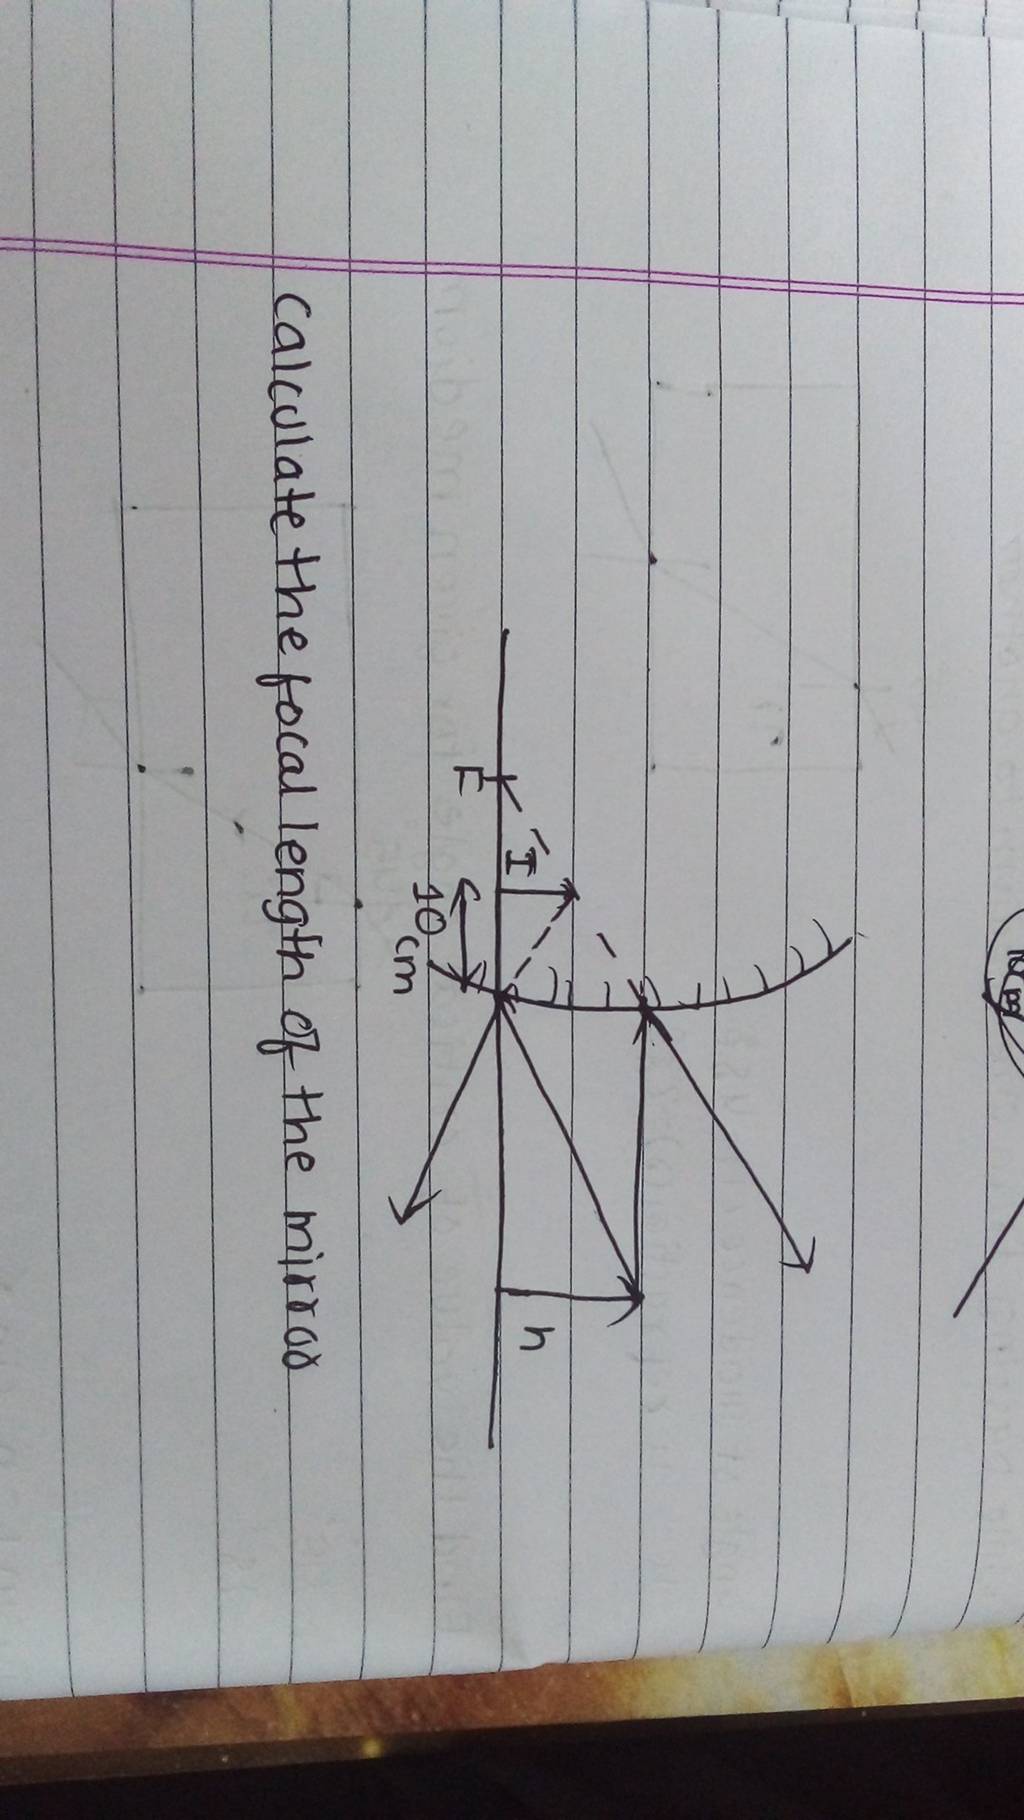 h
I
F
10 cm
Calculate the focal length of the mirror